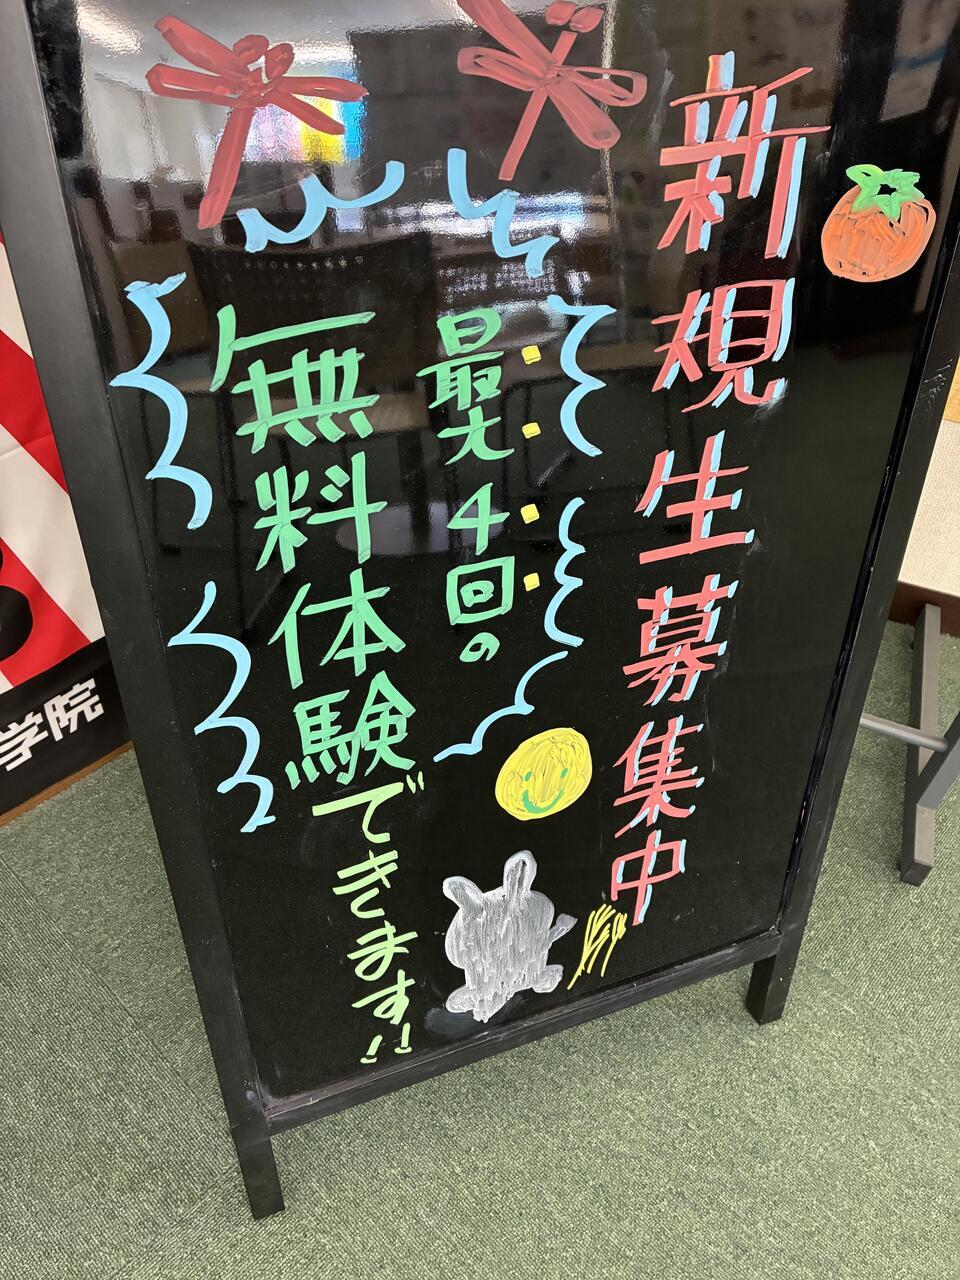 新規生募集中
最大4回の
無料体験できます!!
学院